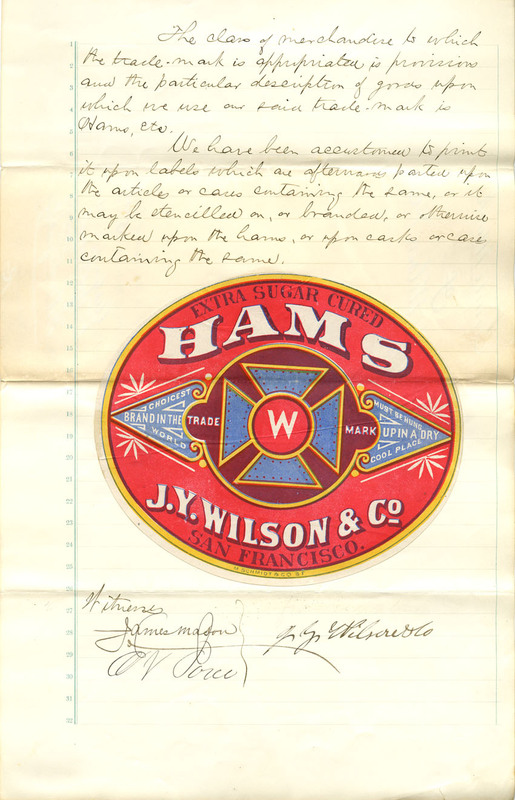 The class of merchandise to which
the trade-mark is appropriated is provisions
and the particular description of goods upon
which we use our said trade-mark is
Hams, etc.
We have been accustomed to print
it upon labels which are afterwards pasted upon
the article, or cases containing the same, or it
may be stencilled on, or branded, or otherwise
marked upon the hams, or upon casks or cases
containing the same.
EXTRA SUGAR CURED
HAMS
CHOICEST
BRAND IN THE
WORLD
TRADE
W
MARK
MUST BE HUNG
UP IN A DRY
COOL PLACE
J.Y. WILSON & Co
SAN FRANCISCO.
H. SCHMIDT & CO S.F.
Witnesses
James Mason
J. Y. Wilson & Co
1
2
3
4
5
6
7
8
9
10
11
12
13
14
15
16
17
18
19
20
21
22
23
24
25
26
27
28
29
30
31
32